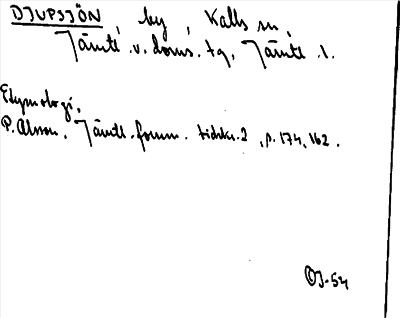 DJUPSJÖN, by, Kalls sn,
Jämtl. v. doms. tg, Jämtl. l.
Etymologi,
P. Olsson, Jämtl. fornm. tidskr. 2, p. 174, 162.
OJ-54